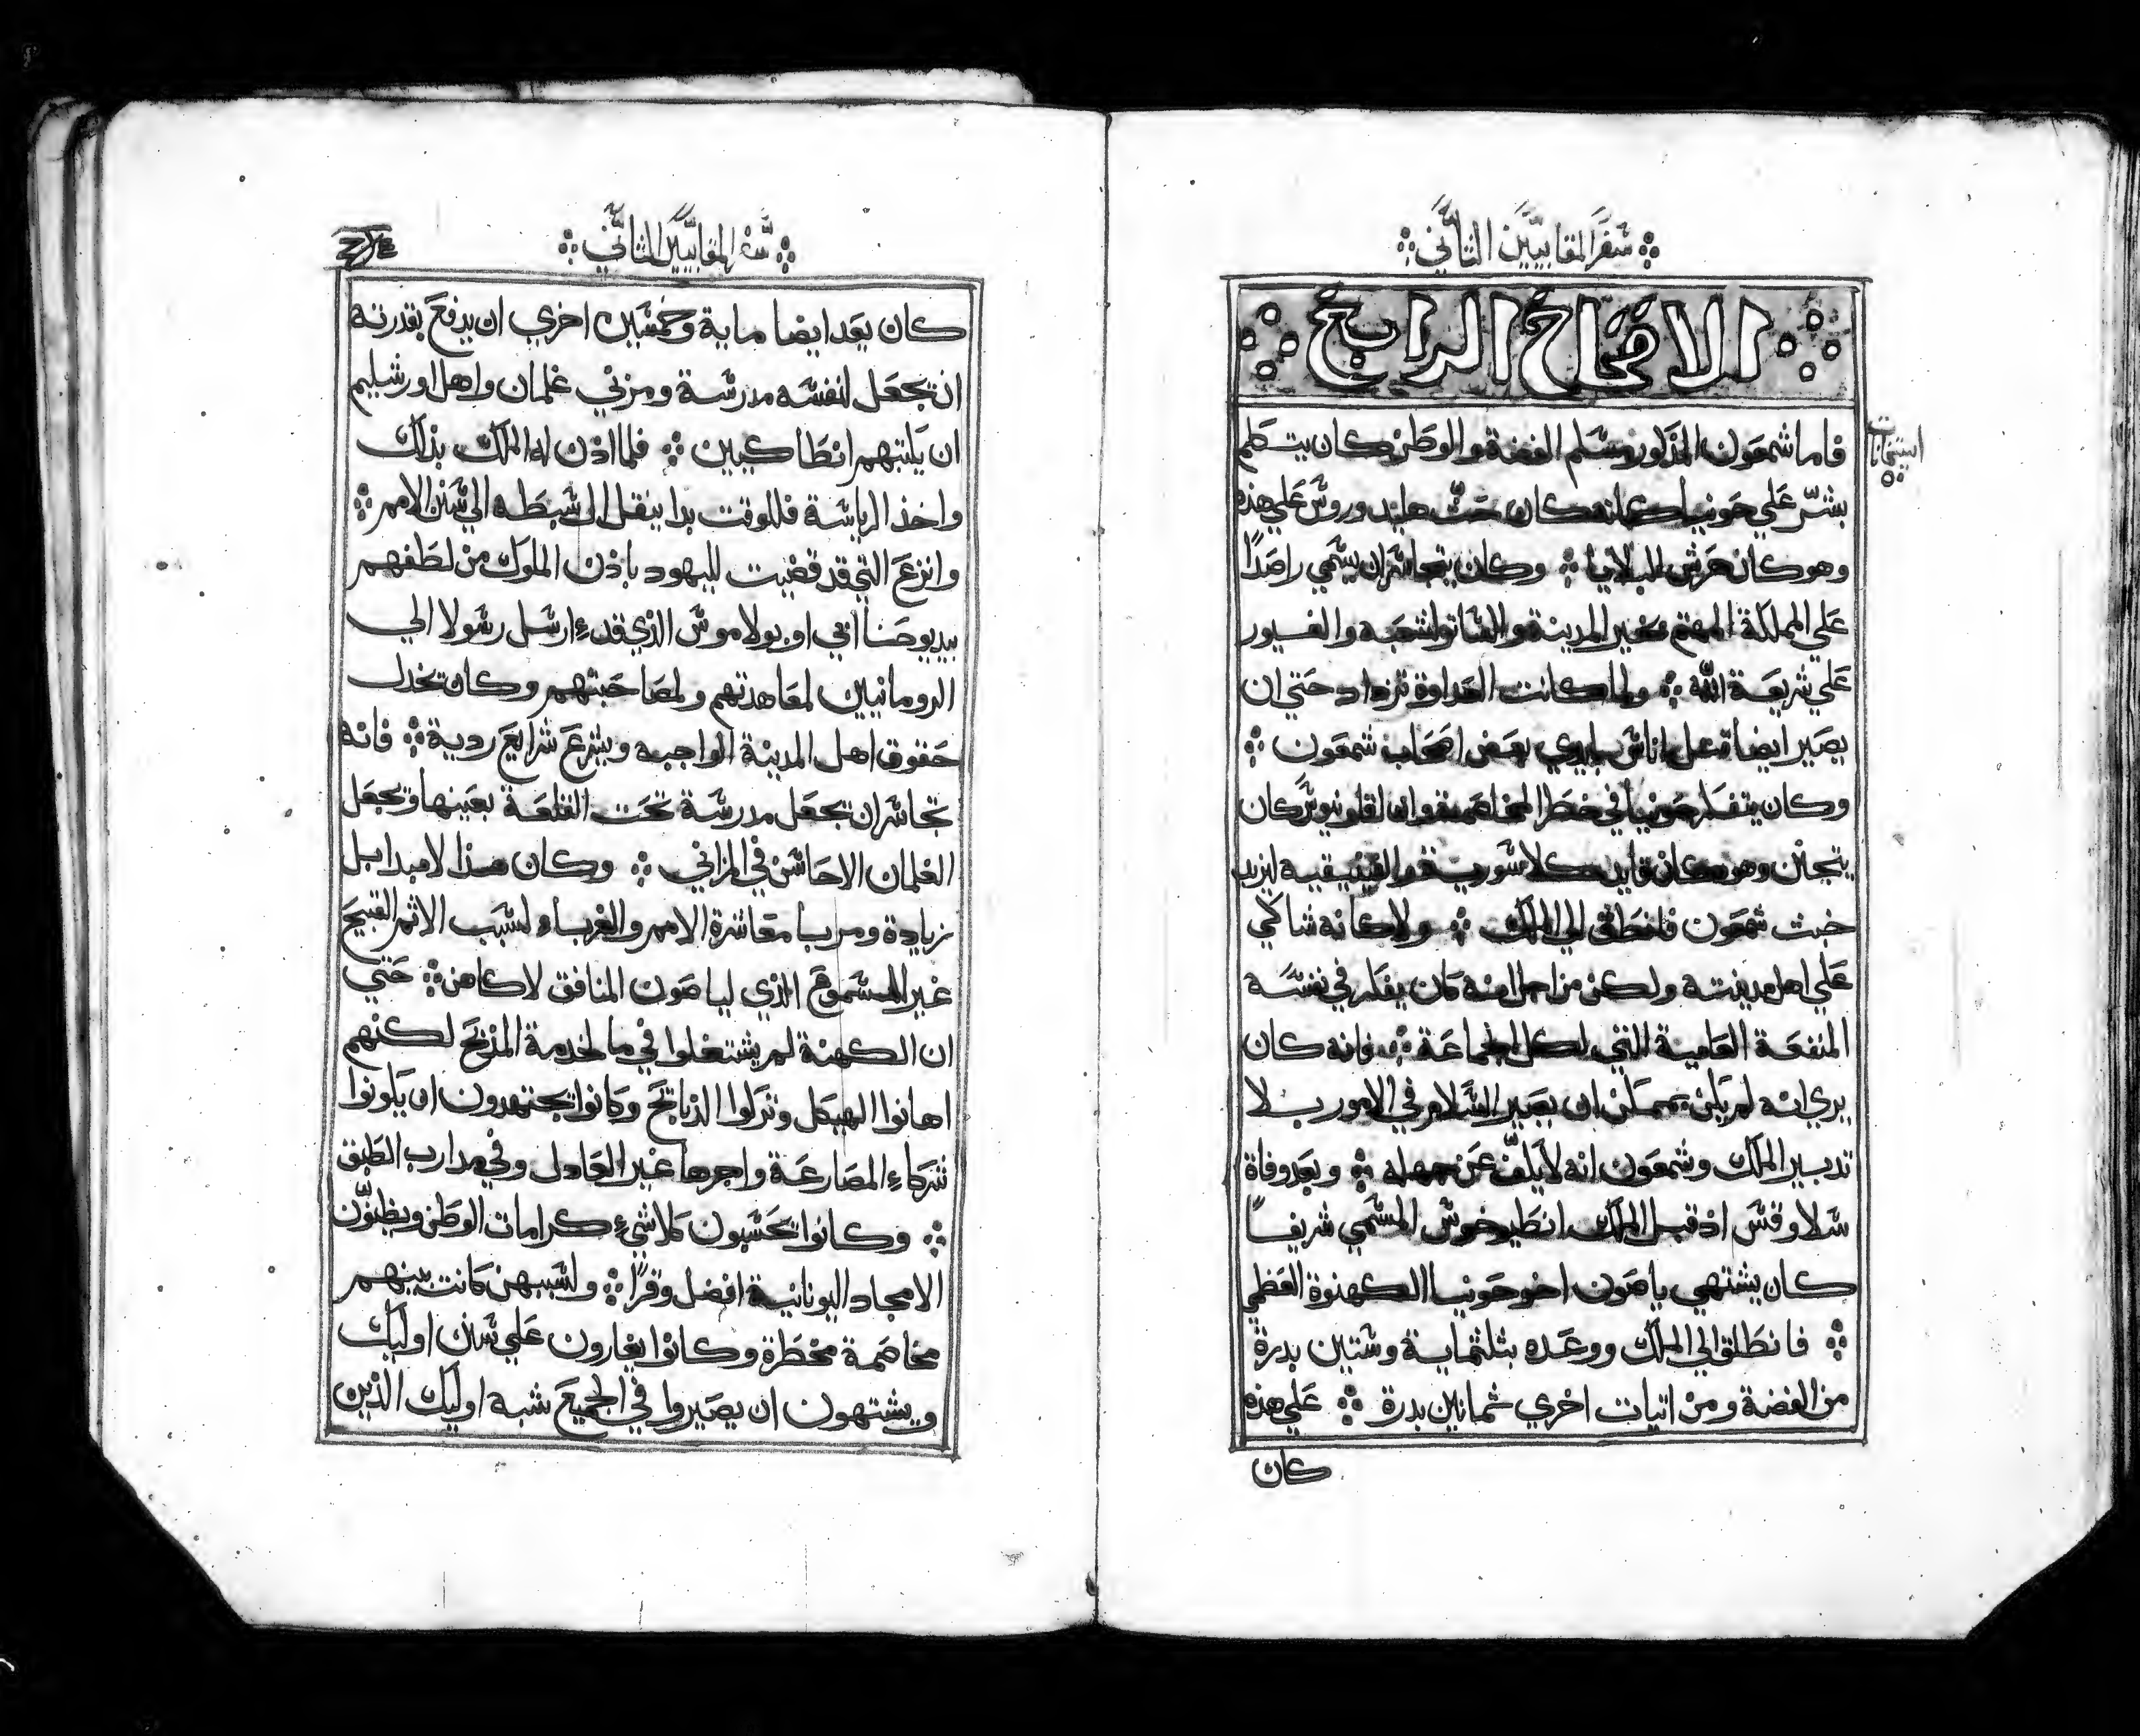 سفر المقابيين الثاني
الافتتاح الرابع
فاما شمعون المذكور مسلم الفضة والوطن كان يتكلم
بشر علي حونيا كانه كان حث هليدوروس علي هذه
وهو كان حرش البلايا وكان يتجاسر ان يسمي راصدًا
علي المملكة المهتم بخير المدينة و لشعبه والغيور
علي شريعة الله ولما كانت العداوة تزداد حتي ان
يصير ايضا قتل اناس بايدي بعض اصحاب شمعون
وكان يتفكر حونيا في خطر المخاصمة وان افلونيوس كان
يتجنن وهو كان قايد كلاسورية والفينيقيه ليزيد
خبث شمعون فانطلق الي الملك ولا كانه شاكي
علي اهل مدينته ولكن من اجل انه كان يفكر في نفسه
المنفعة العامية التي لكل الجماعة فانه كان
يري انه لم يكن ممكن ان يصير السلام في الامور بلا
تدبير الملك وشمعون انه لا يكف عن جهله وبعد وفاة
سلاوقس اذ قبل الملك انطيوخوس المسمي شريفًا
كان يشتهي ياصون اخو حونيا الكهنوة العظمي
فانطلق الي الملك ووعده بثلثماية وستين بدرة
من الفضة ومن اتيات اخري ثمانين بدرة علي هذه
كان
سفر المقابيين الثاني
كان يعد ايضا ماية وخمسين اخري ان يدفع بقدرته
ان تجعل لنفسه مدرسة ومزني غلمان واهل اورشليم
ان يكتبهم انطاكيين فلما اذن له الملك بذلك
واخذ الرياسة فللوقت بدا ينقل الي سبطه الي سنن الامم
وانزع التي قد قضيت لليهود باذن الملوك من لطفهم
بيد يوحنا ابي اوبولاموس الذي قد ارسل رسولا الي
الرومانيين لمعاهدتهم ولمصاحبتهم وكان تخدل
حقوق اهل المدينة الواجبه ويشرع شرايع ردية فانه
تجاسر ان تجعل مدرسة تحت القلعة بعينها وتجعل
الغلمان الاحاسن في المزاني وكان هذا لا مبدا بل
زيادة ومربا معاشرة الامم والغرباء لسبب الاثم القبيح
غير المسموع الذي لياصون المنافق لا كاهن حتي
ان الكهنة لم يشتغلوا في ما لخدمة المذبح لكنهم
اهانوا الهيكل وتركوا الذبايح وكانوا يجتهدون ان يكونوا
شركاء المصارعة واجرها غير العادل وفي مدارب الطبق
وكانوا يحسبون كلا شيء كرامات الوطن ويظنون
الامجاد اليونانية افضل وقرًا ولسببهن كانت بينهم
مخاصمة مخطرة وكانوا يغارون علي سنن اوليك
ويشتهون ان يصيروا في الجميع شبه اوليك الذين